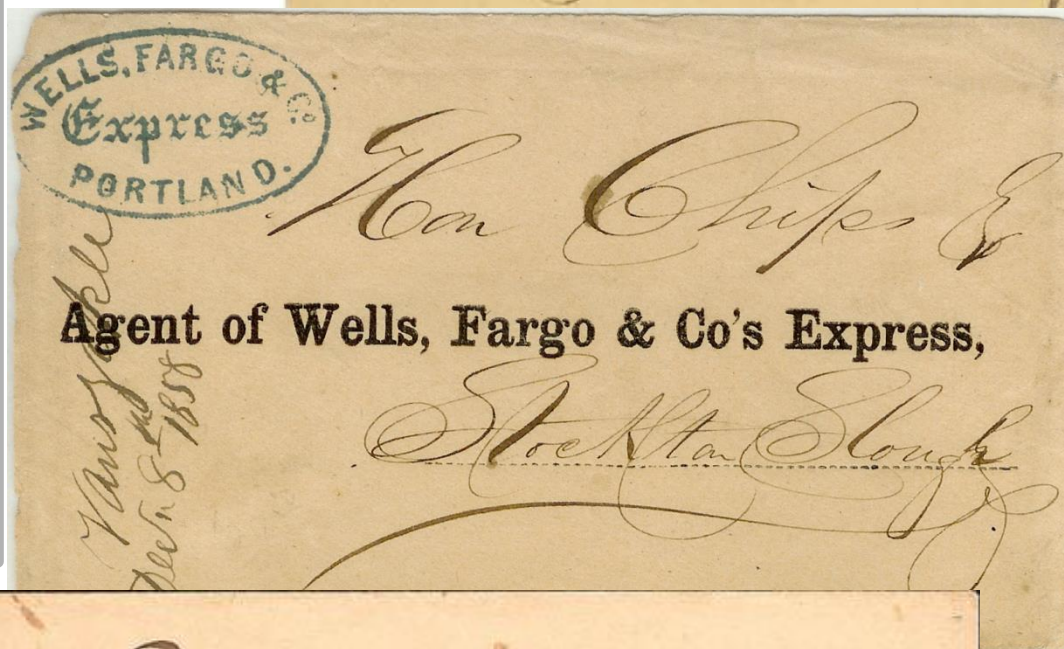 WELLS, FARGO & Co
Express
PORTLAND.
Hon Chips &
Agent of Wells, Fargo & Co's Express,
Stockton Slough
Decr. 8th 1858